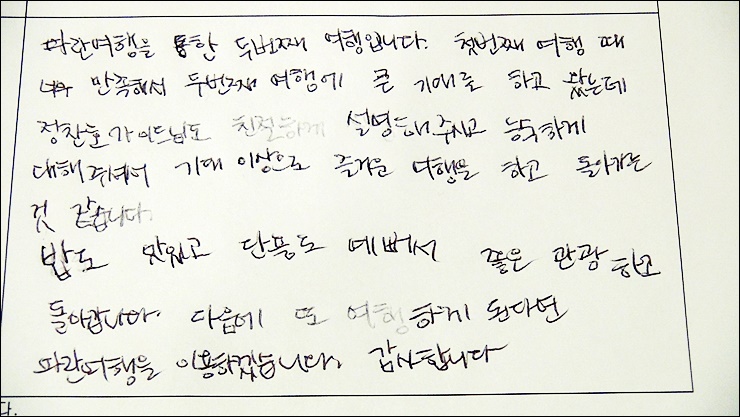 파란여행을 통한 두번째 여행입니다. 첫번째 여행 때
너무 만족해서 두번째 여행에 큰 기대를 하고 왔는데
장찬호가이드님도 친절하게 설명해주시고 능숙하게
대해주셔서 기대 이상으로 즐거운 여행을 하고 돌아가는
것 같습니다.
밥도 맛있고 단풍도 예뻐서 좋은 관광 하고
돌아갑니다. 다음에 또 여행하게 된다면
파란여행을 이용하겠습니다. 감사합니다
다.